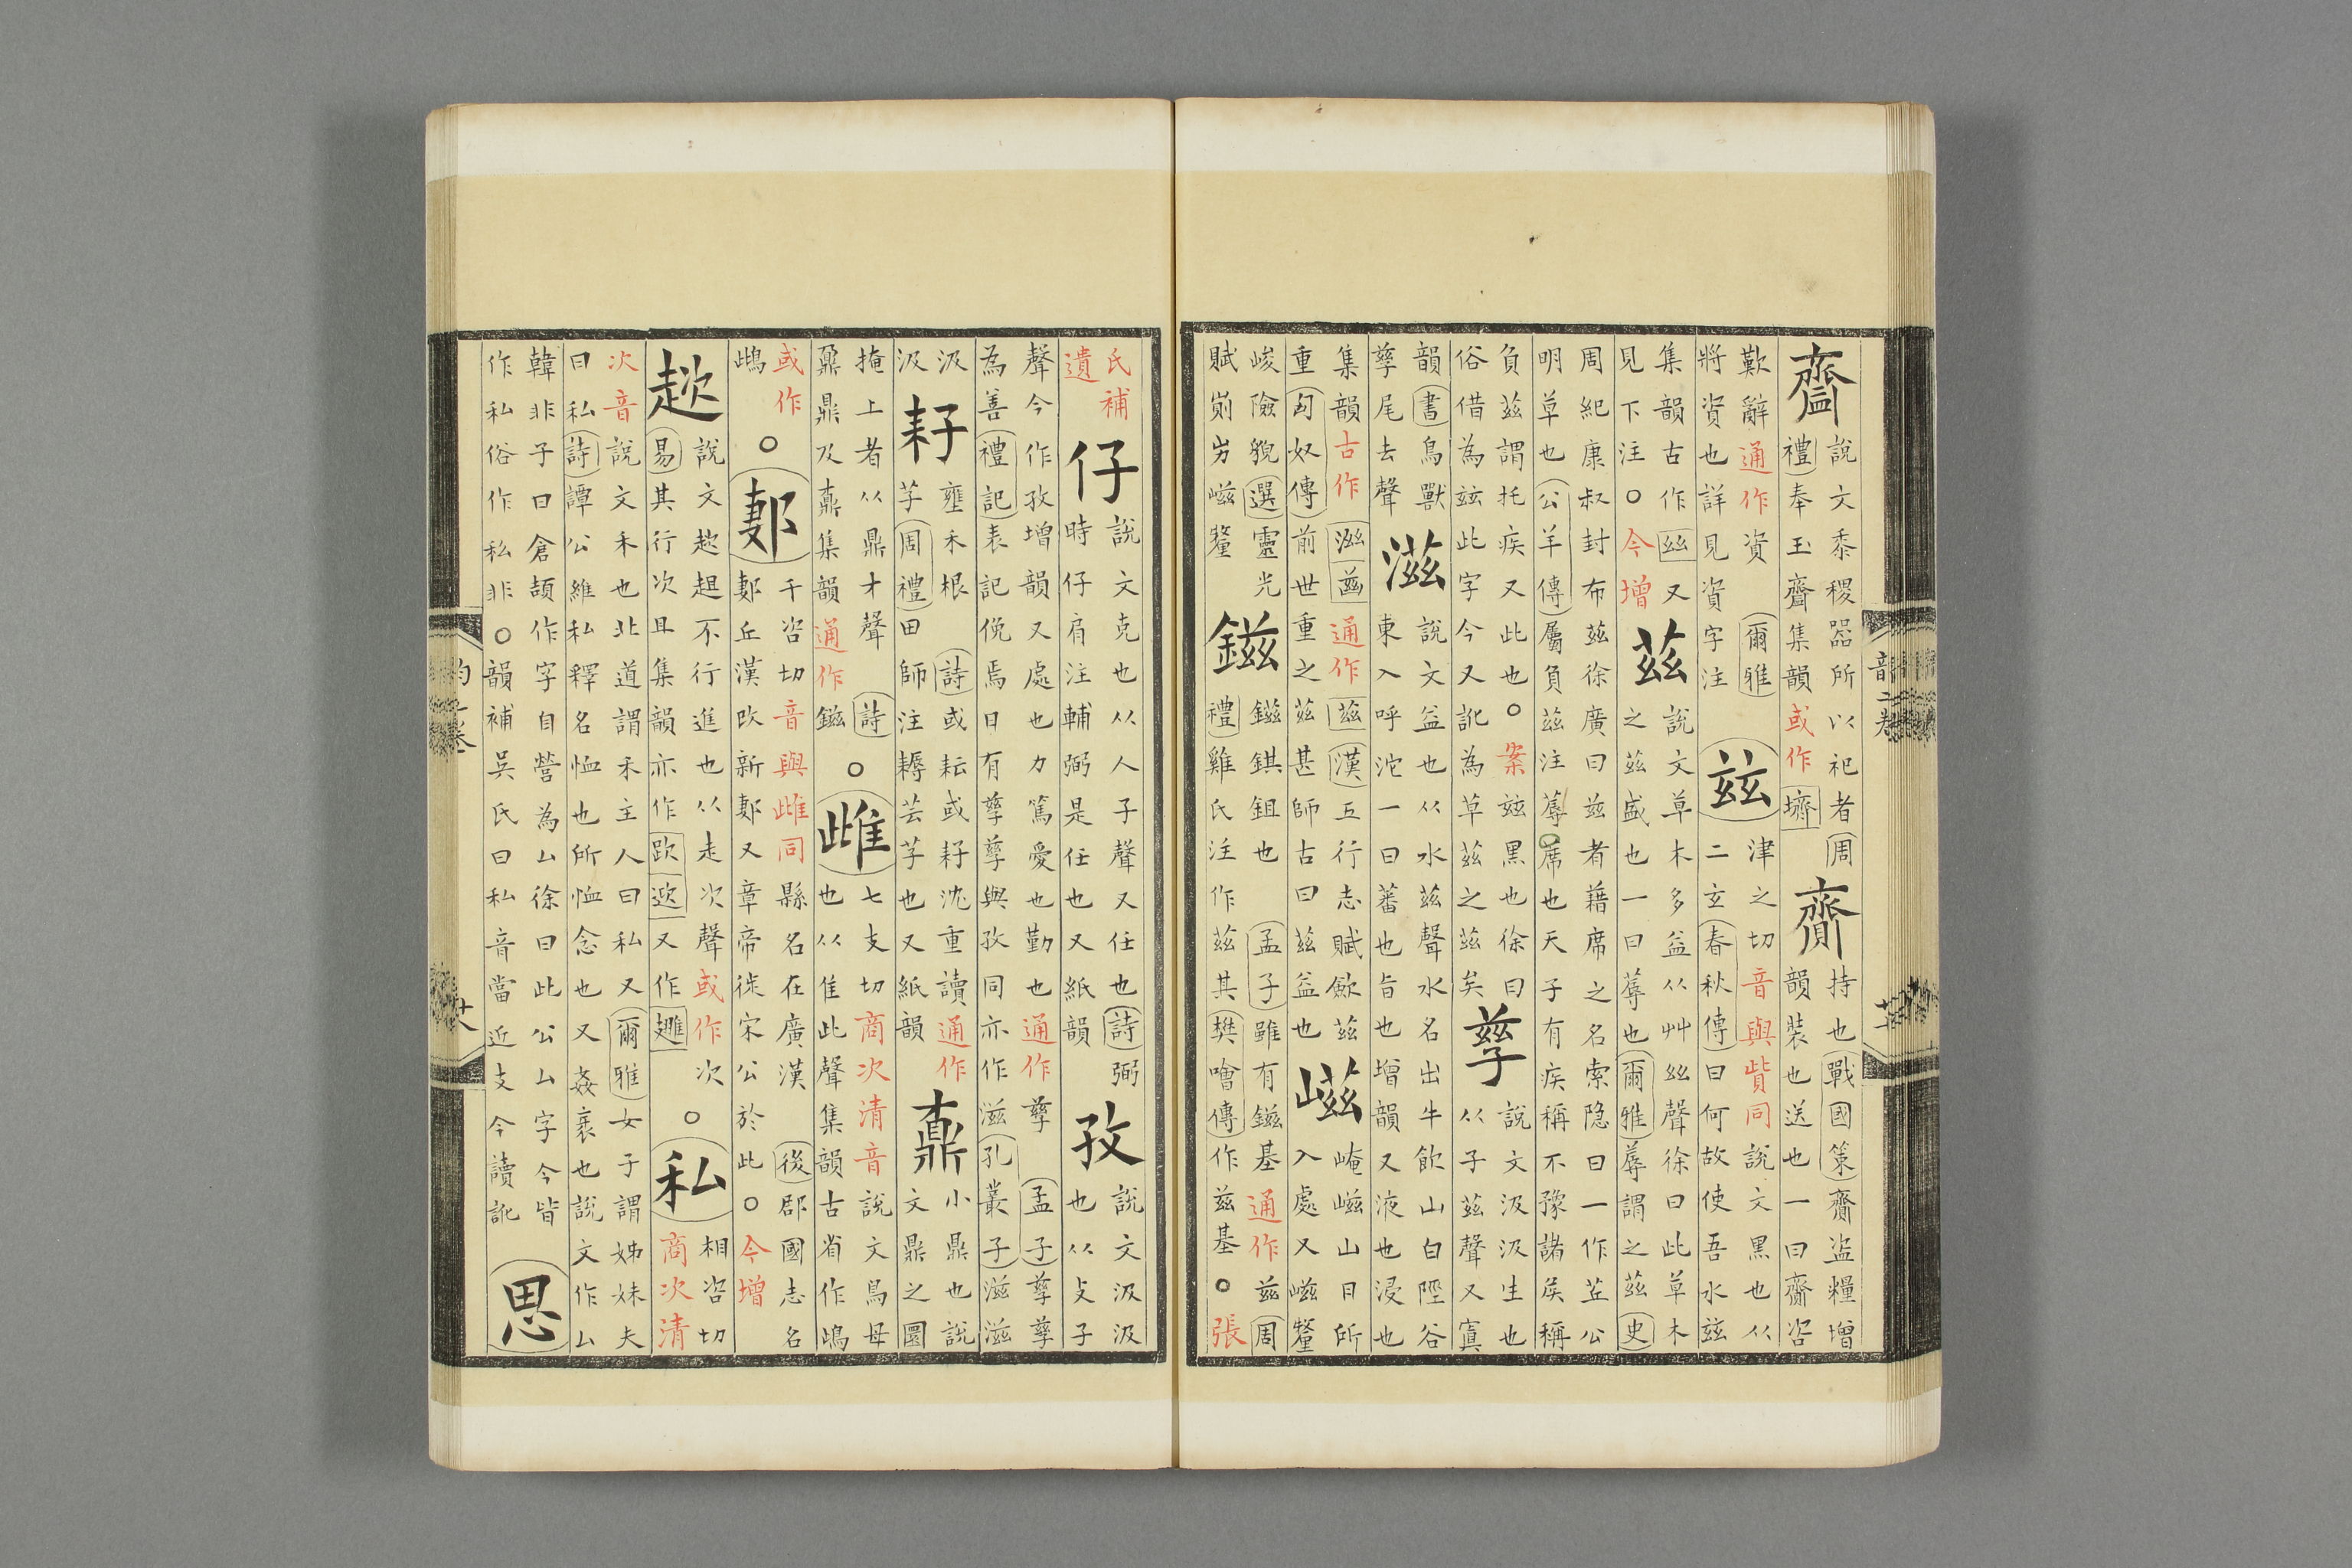 齍
說文黍稷器所以祀者周
禮奉玉齍集韻或作
齎
持也戰國策齎盜糧增
韻裝也送也一曰齎咨
歎辭通作資爾雅
將資也詳見資字注
玆
津之切音與貲同說文黑也从
二玄春秋傳曰何故使吾水玆
集韻古作𢆶又
見下注○今增
茲
說文草木多益从艸絲聲徐曰此草木
之茲盛也一曰蓐也爾雅蓐謂之茲史
周紀康叔封布茲徐廣曰茲者藉席之名索隐曰一作苙公
明草也公羊傳屬負茲注蓐席也天子有疾稱不豫諸侯稱
負茲謂托疾又此也○案玆黑也徐曰
俗借為玆此字今又訛為草茲之茲矣
孳
說文汲汲生也
从子茲聲又寘
韻書鳥獸
孳尾去聲
滋
說文益也从水茲聲水名出牛飲山白陘谷
東入呼沱一曰蕃也旨也增韻又液也浸也
集韻古作通作茲漢五行志賦斂茲
重匈奴傳前世重之茲甚師古曰茲益也
嵫
崦嵫山日所
入處又嵫釐
峻險貌選靈光
賦崱屴嵫釐
鎡
鎡錤鉏也孟子雖有鎡基通作茲周
禮雞氏注作茲其樊噲傳作茲基○張
氏補
遺
仔
說文克也从人子聲又任也詩弼
時仔肩注輔弼是任也又紙韻
孜
說文汲汲
也从攴子
聲今作孜增韻又處也力篤愛也勤也通作孳孟子孳孳
為善禮記表記俛焉日有孳孳與孜同亦作滋孔叢子滋滋
汲
汲
耔
壅禾根詩或耘或耔沈重讀通作
芓周禮田師注耨芸芓也又紙韻
鼒
小鼎也說
文鼎之圜
掩上者从鼎才聲詩
鼐鼎及鼒集韻通作鎡
○
雌
七支切商次清音說文鳥母
也从隹此聲集韻古省作
或作
○
郪
千咨切音與雌同縣名在廣漢後郡國志名
郪丘漢改新郪又章帝徙宋公於此○今增
趑
說文趑趄不行進也从走次聲或作次
易其行次且集韻亦作又作
○
私
相咨切
商次清
次音說文禾也北道謂禾主人曰私又爾雅女子謂姊妹夫
曰私詩譚公維私釋名恤也所恤念也又姦衺也說文作厶
韓非子曰倉頡作字自營為厶徐曰此公厶字今皆
作私俗作私非○韻補吳氏曰私音當近支今讀訛
思